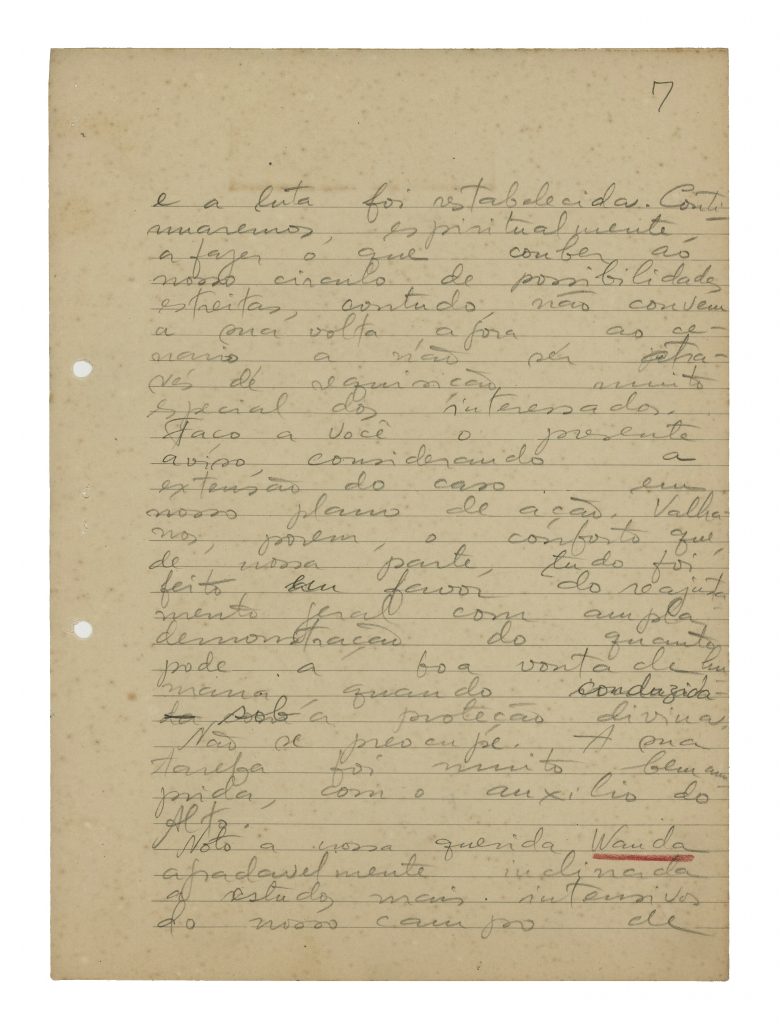 7
e a luta foi restabelecida. Conti-
nuaremos, espiritualmente,
a fazer o que couber ao
nosso circulo de possibilidades
estreitas, contudo, não convém
a sua volta agora ao ce-
nario a não ser atra-
vés de requisição muito
especial dos interessados.
Faço a você o presente
aviso, considerando a
extensão do caso em
nosso plano de ação. Valha-
nos, porem, o conforto que,
de nossa parte, tudo foi
feito em favor do reajusta
mento geral com ampla
demonstração do quanto
pode a boa vontade hu
mana, quando conduzida
sob a proteção divina.
Não se preocupe. A sua
tarefa foi muito bem cum
prida, com o auxilio do
Alto.
Noto a nossa querida Wanda
agradavelmente inclinada
a estudos mais intensivos
do nosso campo de